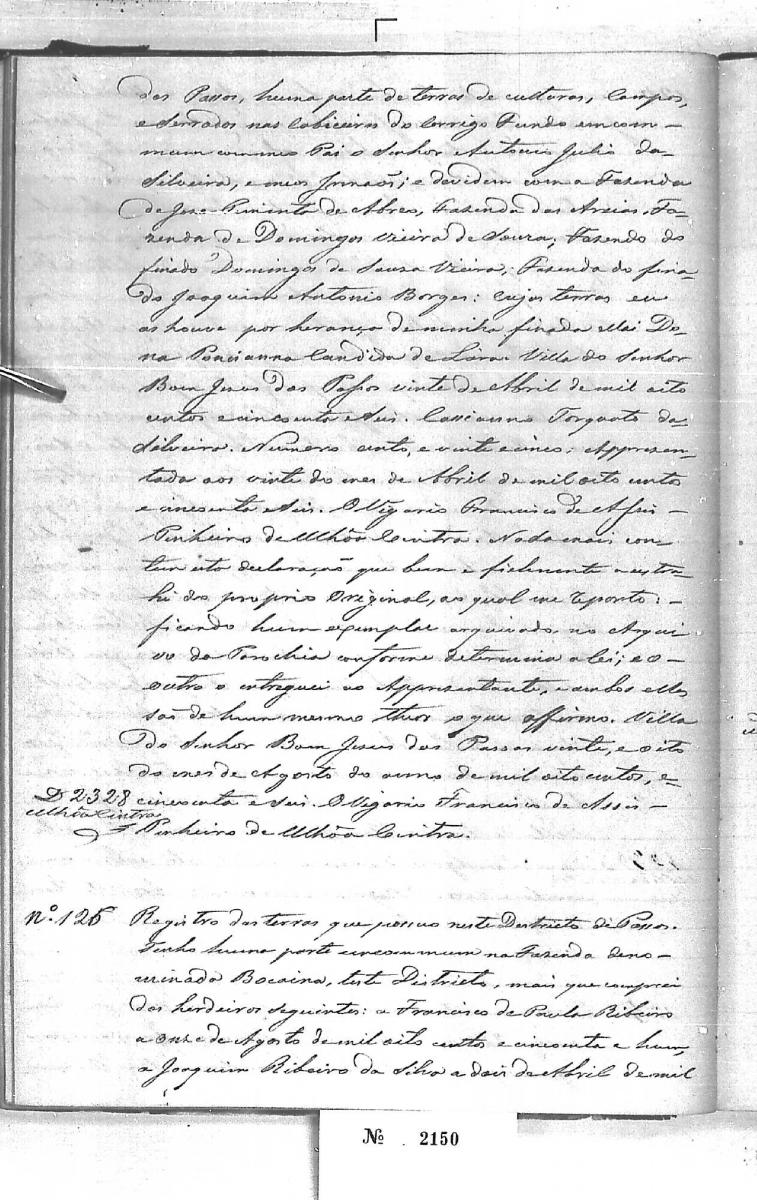 dos Passos, huma parte de terras de culturas, Campos,
e Serrados nas Cabiceiras do Corrigo Fundo em com-
mum com meo Pai o Senhor Antonio Julio da
Silveira, e meos Irmaõs; e devidem com a Fazenda
de Jose Pimenta de Abreo, Fazenda das Areias, Fa-
zenda de Domingos Vieira de Souza, Fazenda do
finado Domingos de Souza Vieira, Fazenda do fina-
do Joaquim Antonio Borges: cujas terras eu
as houve por herança de minha finada Mai Do-
na Poncianna Candida de Lara. Villa do Senhor
Bom Jesus dos Passos vinte de Abril de mil oito
centos e cincoenta e Seis. Cassianno Torquato da
Silveira. Numero cento, e vinte e cinco: Appresen-
tada aos vinte do mes de Abril de mil oito centos
e cincoenta e Seis. O Vigario Francisco de Assis
Pinheiro de Ulhôa Cintra. Nada mais con-
tem esta declaraçaõ que bem e fielmente a estra-
hi do proprio Original, ao qual me reporto:
ficando hum exemplar arquivado no Arqui-
vo da Parochia conforme determina a lei; e o
outro o entreguei ao Appresentante, e ambos elles
saõ de hum mesmo theor o que affirmo. Villa
do Senhor Bom Jesus dos Passos vinte, e oito
do mes de Agosto do anno de mil oito centos, e
D 2328 cincoenta e Seis. O Vigario Francisco de Assis
Ulhôa Cintra Pinheiro de Ulhôa Cintra.
nº. 126 Registro das terras que possuo neste Destricto de Passos.
Tenho huma parte em commum na Fazenda deno-
minada Bocaina, deste Districto, mais que comprei
dos herdeiros seguintes: a Francisco de Paula Ribeiro
a onze de Agosto de mil oito centos e cincoenta e hum,
a Joaquim Ribeiro da Silva a dois de Abril de mil
Nº 2150